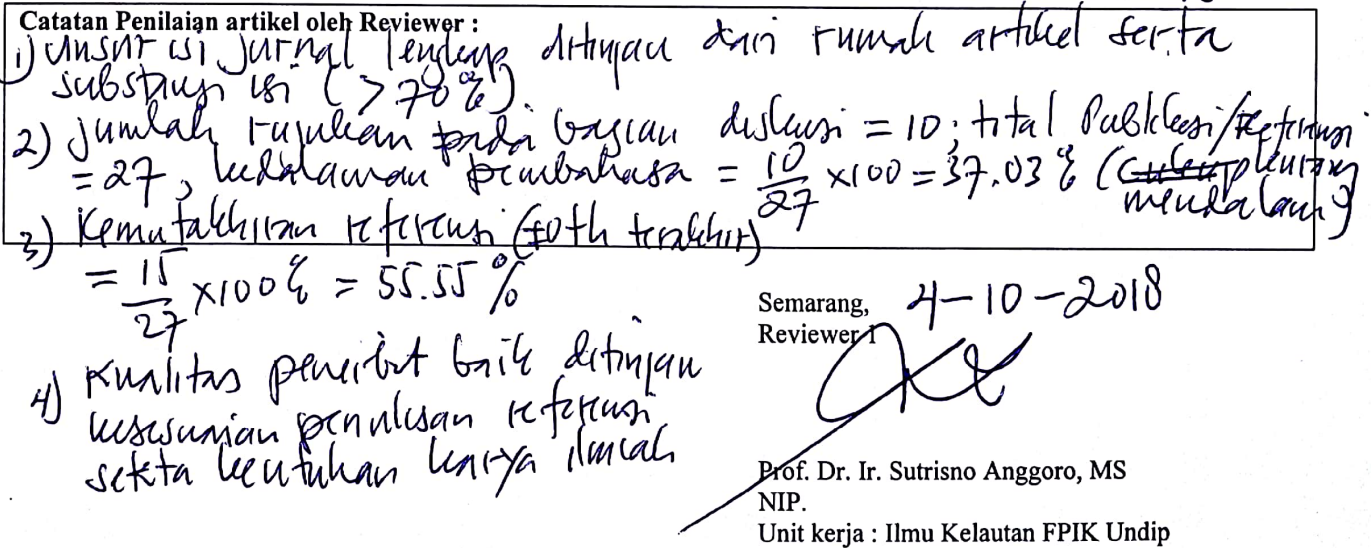 Catatan Penilaian artikel oleh Reviewer :
1) Unsur isi jurnal lengkap ditinjau dari rumah artikel serta
substansi isi (> 70%).
2) Jumlah rujukan pada bagian diskusi = 10; total Publikasi/Referensi
= 27, kedalaman pembahasa = 10/27 x100 = 37.03 % (Cukup kurang
mendalam)
3) Kemutakhiran referensi (10th terakhir)
= 15/27 x100% = 55.55 %
Semarang, 4-10-2018
Reviewer 1
4) Kualitas penerbit baik ditinjau
kesesuaian penulisan referensi
serta keutuhan karya ilmiah
Prof. Dr. Ir. Sutrisno Anggoro, MS
NIP.
Unit kerja : Ilmu Kelautan FPIK Undip